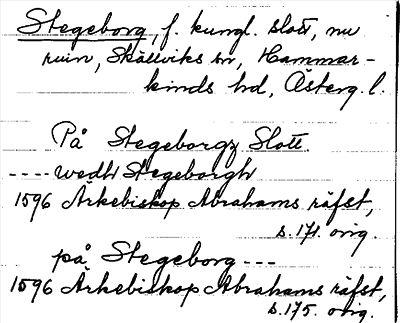 Stegeborg, f. kungl. slott, nu
ruin, Skällviks sn, Hammar-
kinds hd, Österg. l.
På Stegeborgz Slott.
---- wedh Stegeborgh
1596 Ärkebiskop Abrahams räfst,
s. 171. orig.
på Stegeborg ---
1596 Ärkebiskop Abrahams räfst,
s. 175. orig.